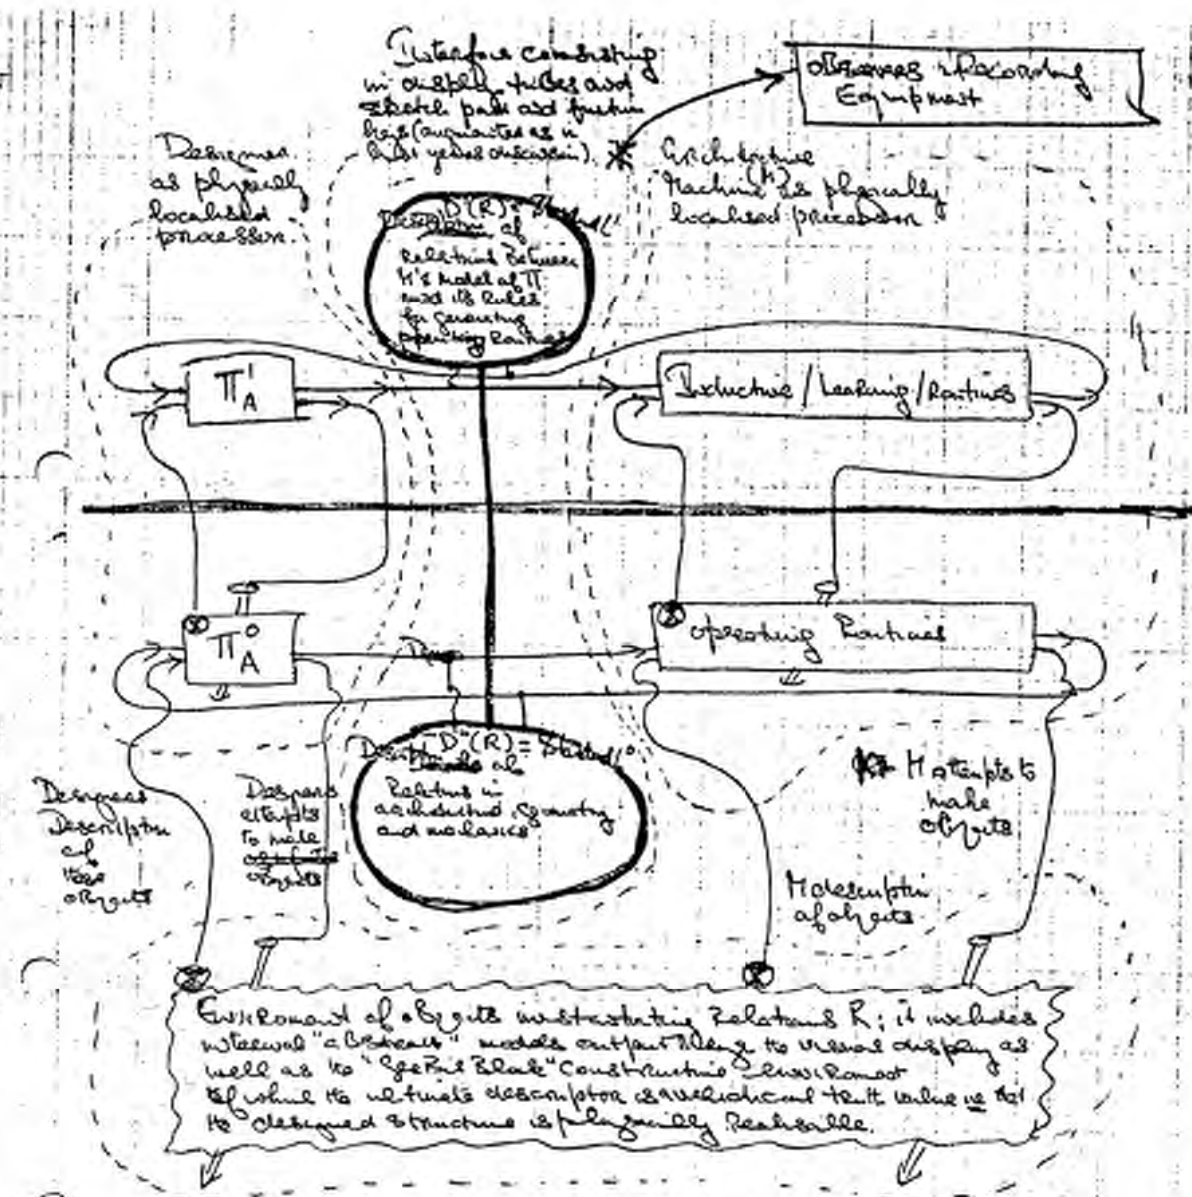 Interface consisting
in display tubes and
sketch pads and function
keys (augmented as in
last years discussion).
Observers & Recording
Equipment
Designer
as physically
localised
processor.
Architecture
Machine as physically
localised processor
D'(R)
Description of
Relations between
M's model of Π
and its Rules
for generating
operating Routines
Π¹A
Inductive / Learning / Routines
Π⁰A
operating Routines
D⁰(R) =
Relations in
architecture, Geometry
and mechanics
Designers
Description
of
these
objects
Designers
attempts
to make
objects
M attempts to
make
objects
M description
of objects
Environment of objects instantiating Relations R; it includes
internal "abstract" models output to visual display as
well as the "Block" Construction environment
of which the ultimate descriptor is truth value
the designed structure is physically Realisable.